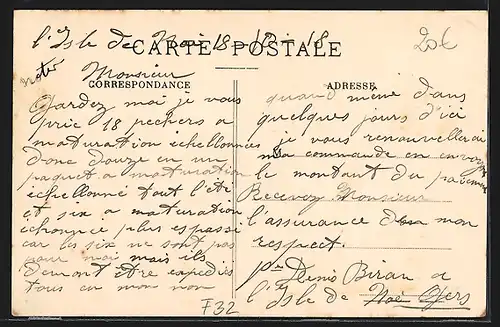 l'Isle de Noé 18 - 12 - 18
20€
CARTE POSTALE
Monsieur
CORRESPONDANCE
ADRESSE
Gardez moi je vous
prie 18 pechers a
maturation échellonnée
donc douze en un
paquet a maturation
échellonné tout l'été
et six a maturation
échonnce plus espassé
car les six ne sont pas
pour moi mais ils
demont être expediés
tous en mon nom
F32
quand même dans
quelques jours d'ici
je vous renouvellerai
ma commande en envoyant
le montant du paiement
Recevez Monsieur
l'assurance de mon
respect.
pr Denis Biran a
l'Isle de Noé Gers